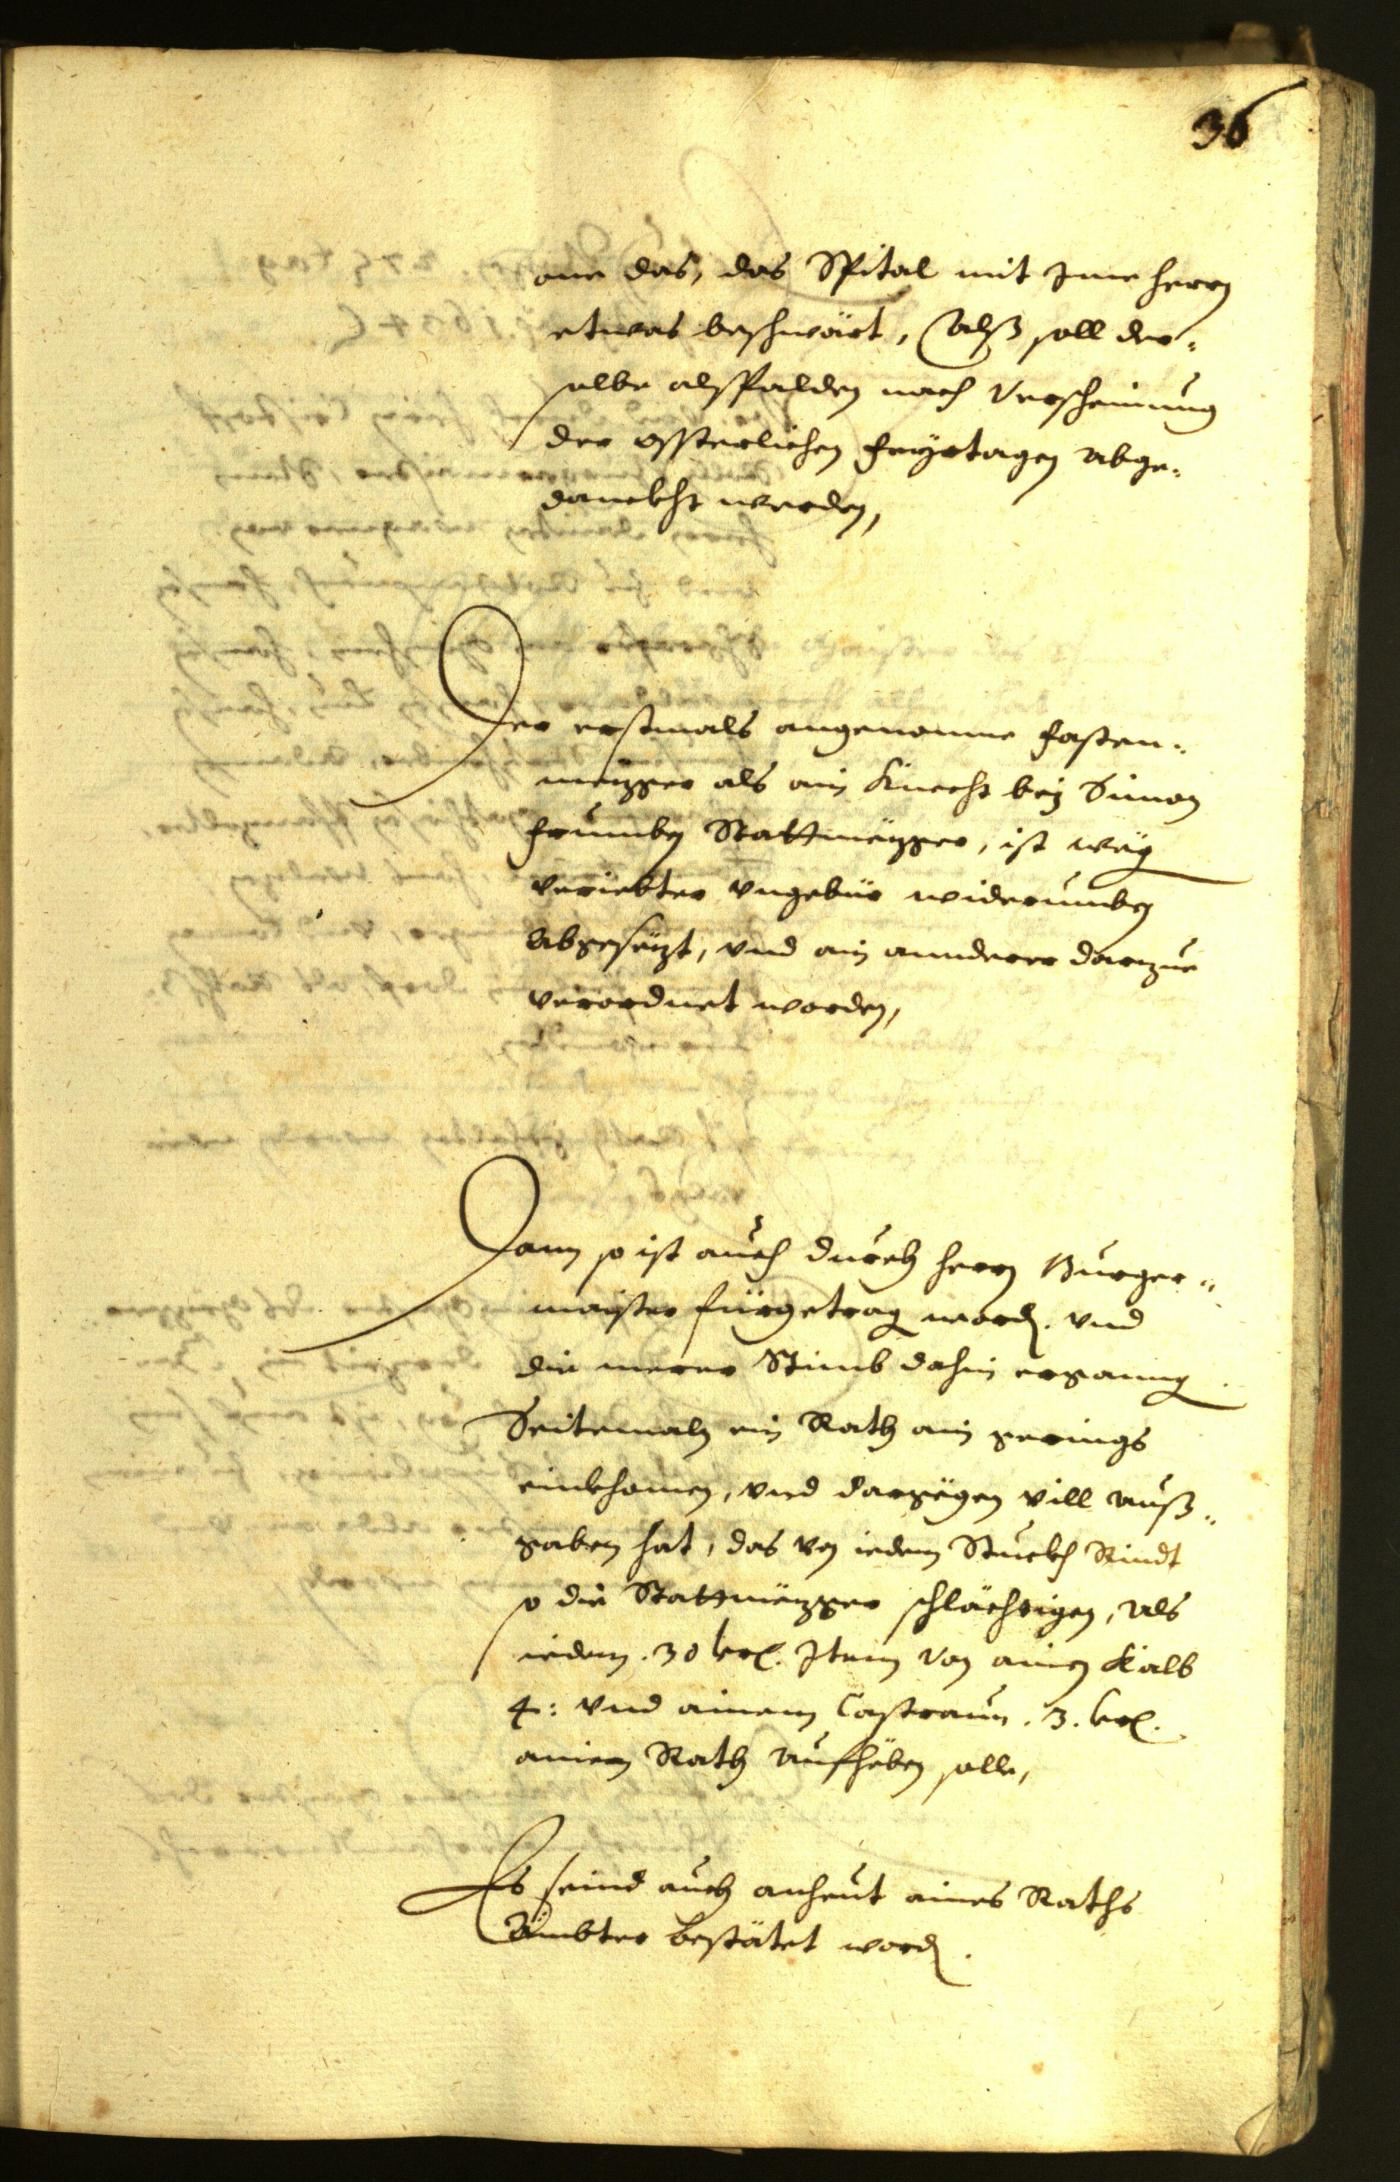 36
one das, das Spital mit Ime herrn
etwas beschwärt, Alß soll der¬
selbe alßbalden nach Verscheinung
der össterlichen feÿrtagen abge¬
danckht werden,
Der erstmals angenomne fasten¬
mezger als ein Knecht beÿ Simon
frumben Stattmezger, ist weg
veriebter vngebür widerumben
abgesezt, vnd ain annderer darzue
verordnet worden,
Dann so ist auch durch herrn Burger¬
maister fürgetrag word. vnd
die merer Stimb dahin ergang
Seitemaln ein Rath ain gerings
einkhomen, vnd dargegen vill auß¬
gaben hat, das von iedem Stuckh Rindt
so die Stattmezger schlachtigen, als
iedem. 30 krl. Item von ainen Kalb
4: vnd ainem Castraun. 3. krl.
ainem Rath aufheben solle,
Es seind auch anheut aines Raths
Ämbter bestätet word.